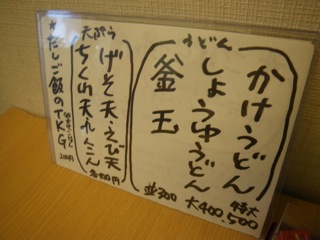 うどん
かけうどん
しょうゆうどん
釜玉
並300
大400
特大500
天ぷら
げそ天・えび天
ちくわ天・れんこん
各100円
*だしご飯のTKG
200円